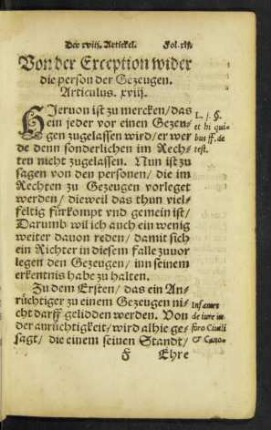 Der xviij. Artickel. Fol. xlj.
Von der Exception wider
die person der Gezeugen.
Articulus. xviij.
HJeruon ist zu mercken/ das
ein jeder vor einen Gezeu-
gen zugelassen wird/ er wer
de denn sonderlichen im Rech-
ten nicht zugelassen. Nun ist zu
sagen von den personen/ die im
Rechten zu Gezeugen vorleget
werden/ dieweil das thun viel-
feltig fürkompt vnd gemein ist/
Darumb wil ich auch ein wenig
weiter dauon reden/ damit sich
ein Richter in diesem falle zuuor
legen den Gezeugen/ inn seinem
erkentnis habe zu halten.
Zu dem Ersten/ das ein An-
rüchtiger zu einem Gezeugen ni-
cht darff gelidden werden. Von
der anrüchtigkeit/ wird alhie ge-
sagt/ die einem seinen Standt/
F Ehre
L. j. §.
et hi qui-
bus ff. de
test.
Infames
de iure in
foro Ciuili
& Cano-